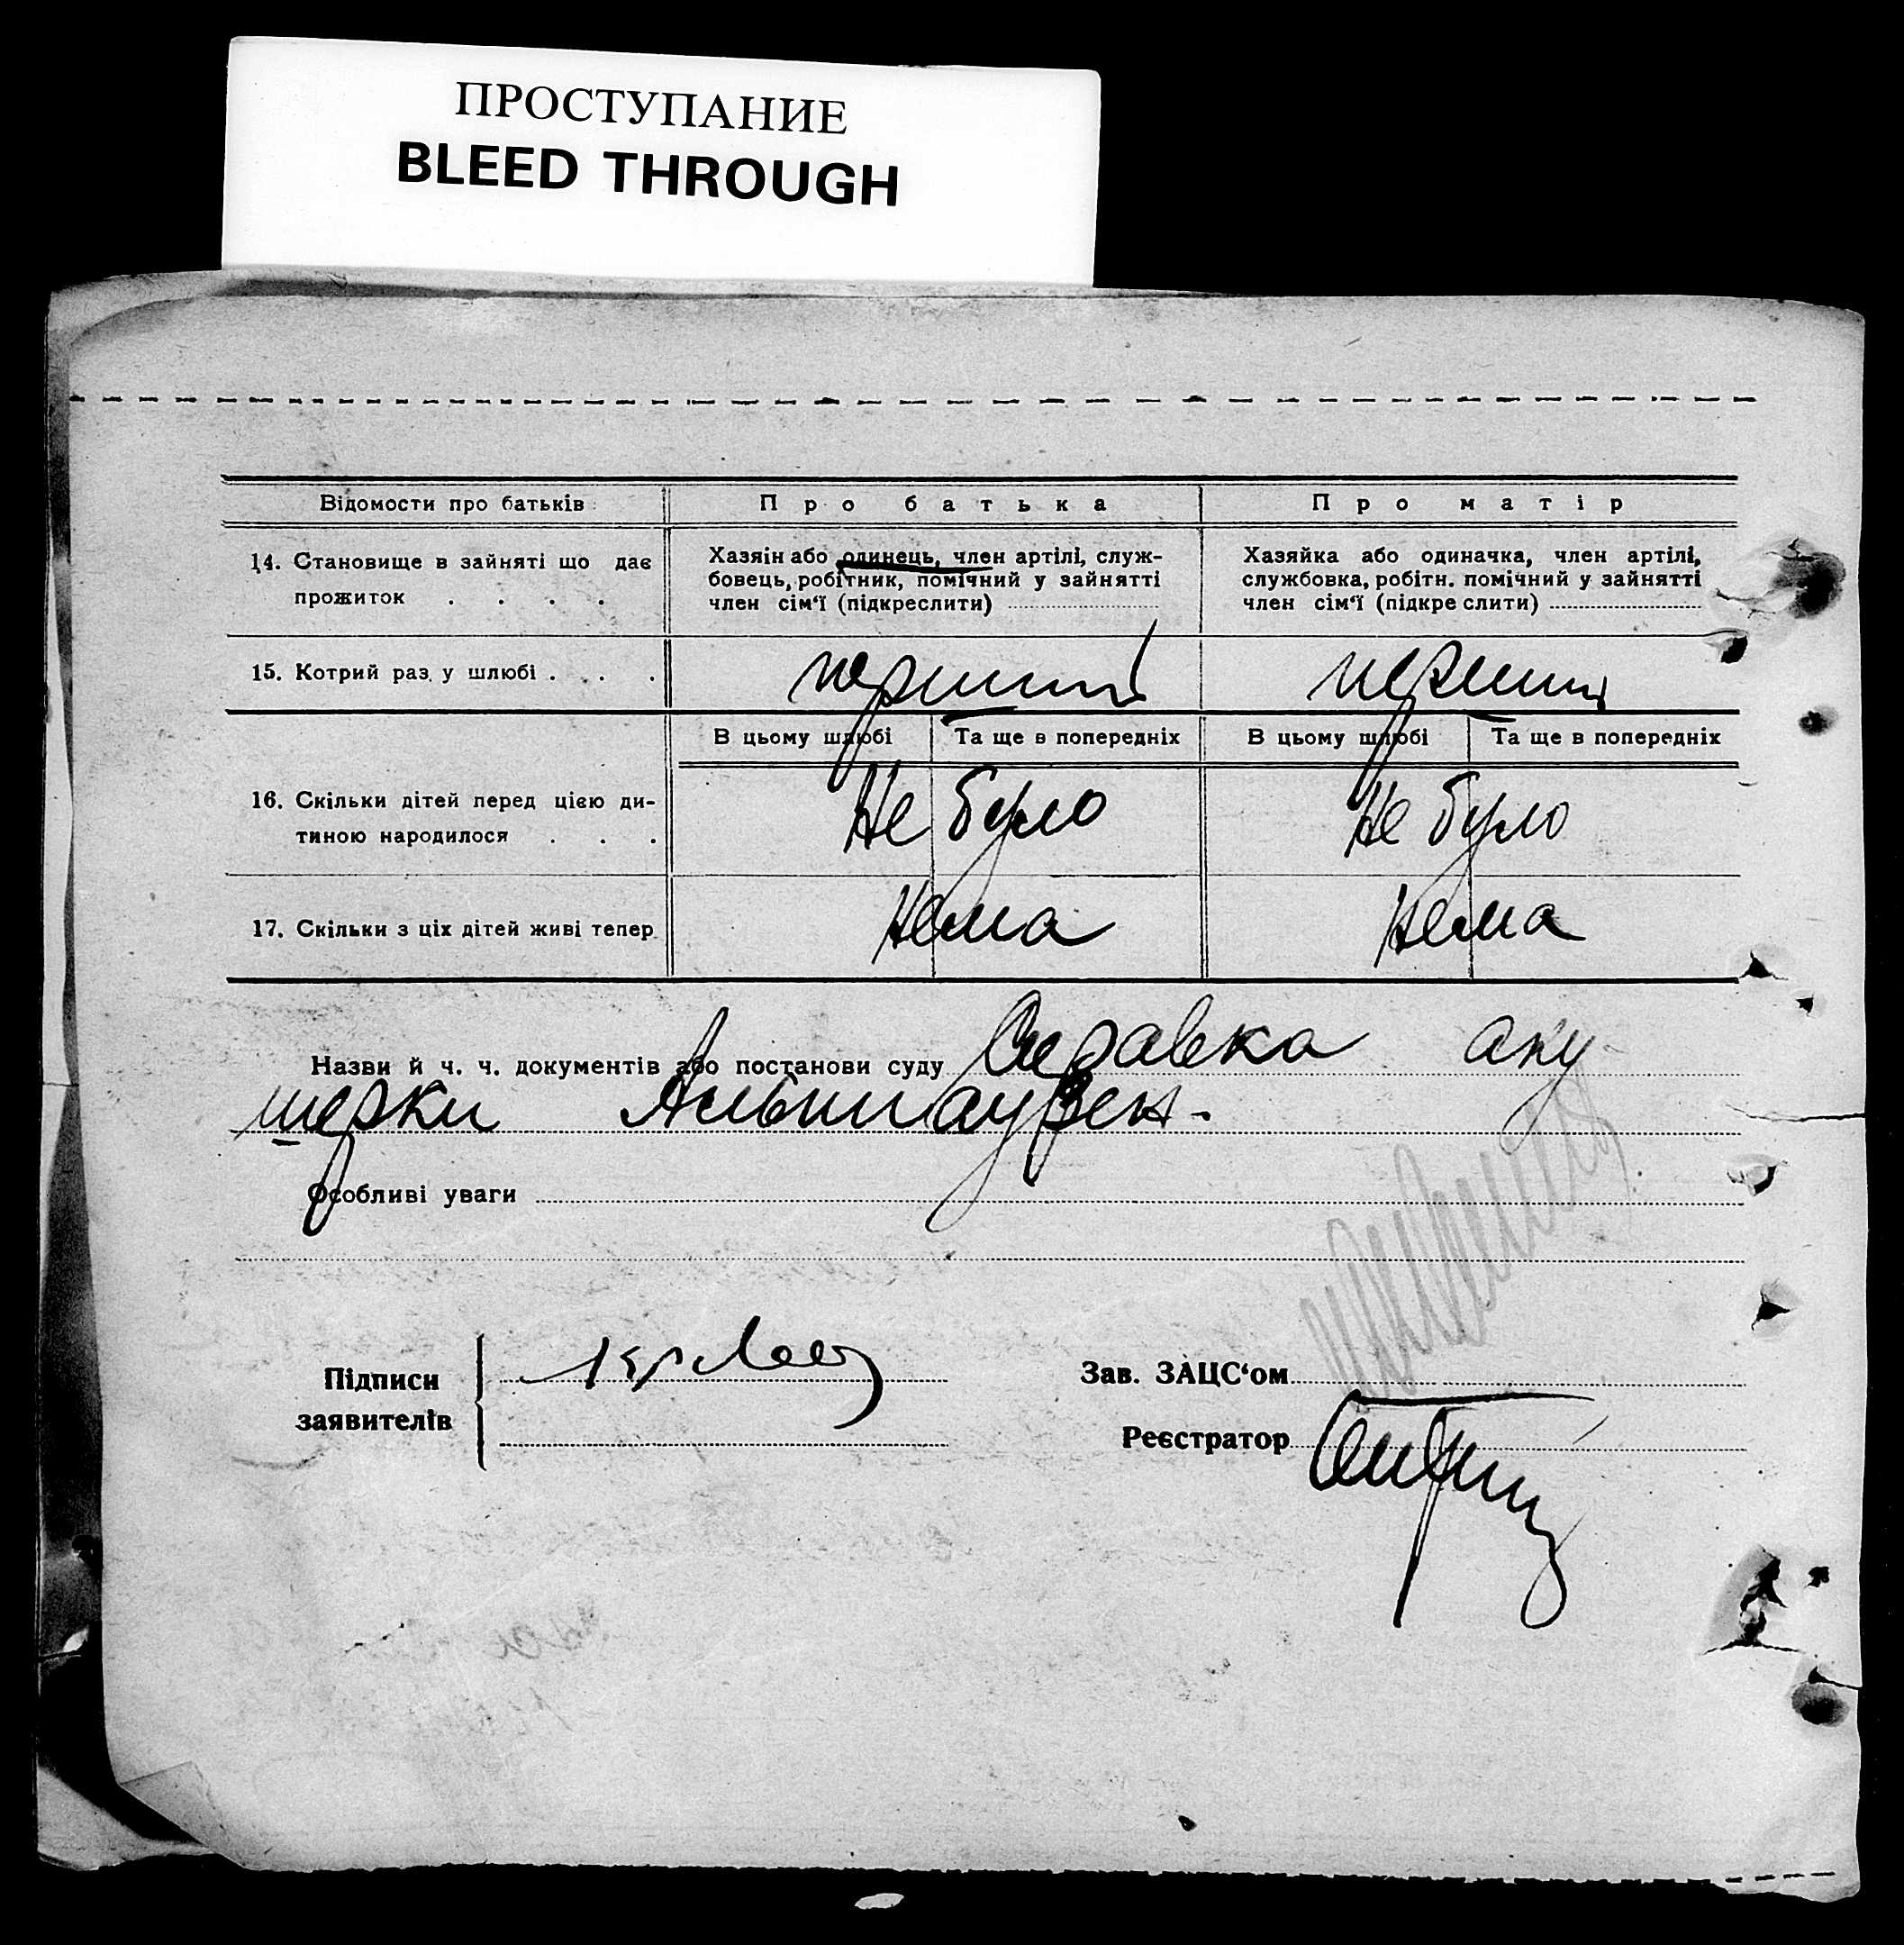 ПРОСТУПАНИЕ
BLEED THROUGH
Відомости про батьків
Про батька
Про матір
14. Становище в зайняті що дає
прожиток . . . .
Хазяін або одинець, член артілі, служ-
бовець, робітник, помічний у зайнятті
член сім‘ї (підкреслити)
Хазяйка або одиначка, член артілі,
службовка, робітн. помічний у зайнятті
член сім‘ї (підкре слити)
15. Котрий раз у шлюбі . . .
перший
перший
В цьому шлюбі
Та ще в попередніх
В цьому шлюбі
Та ще в попередніх
16. Скільки дітей перед цією ди-
тиною народилося . . .
Не було
Не було
17. Скільки з ціх дітей живі тепер
Нема
Нема
Назви й ч. ч. документів або постанови суду Справка аку
шерки
Особливі уваги
Підписи
заявителів
Зав. ЗАЦС‘ом
Реєстратор